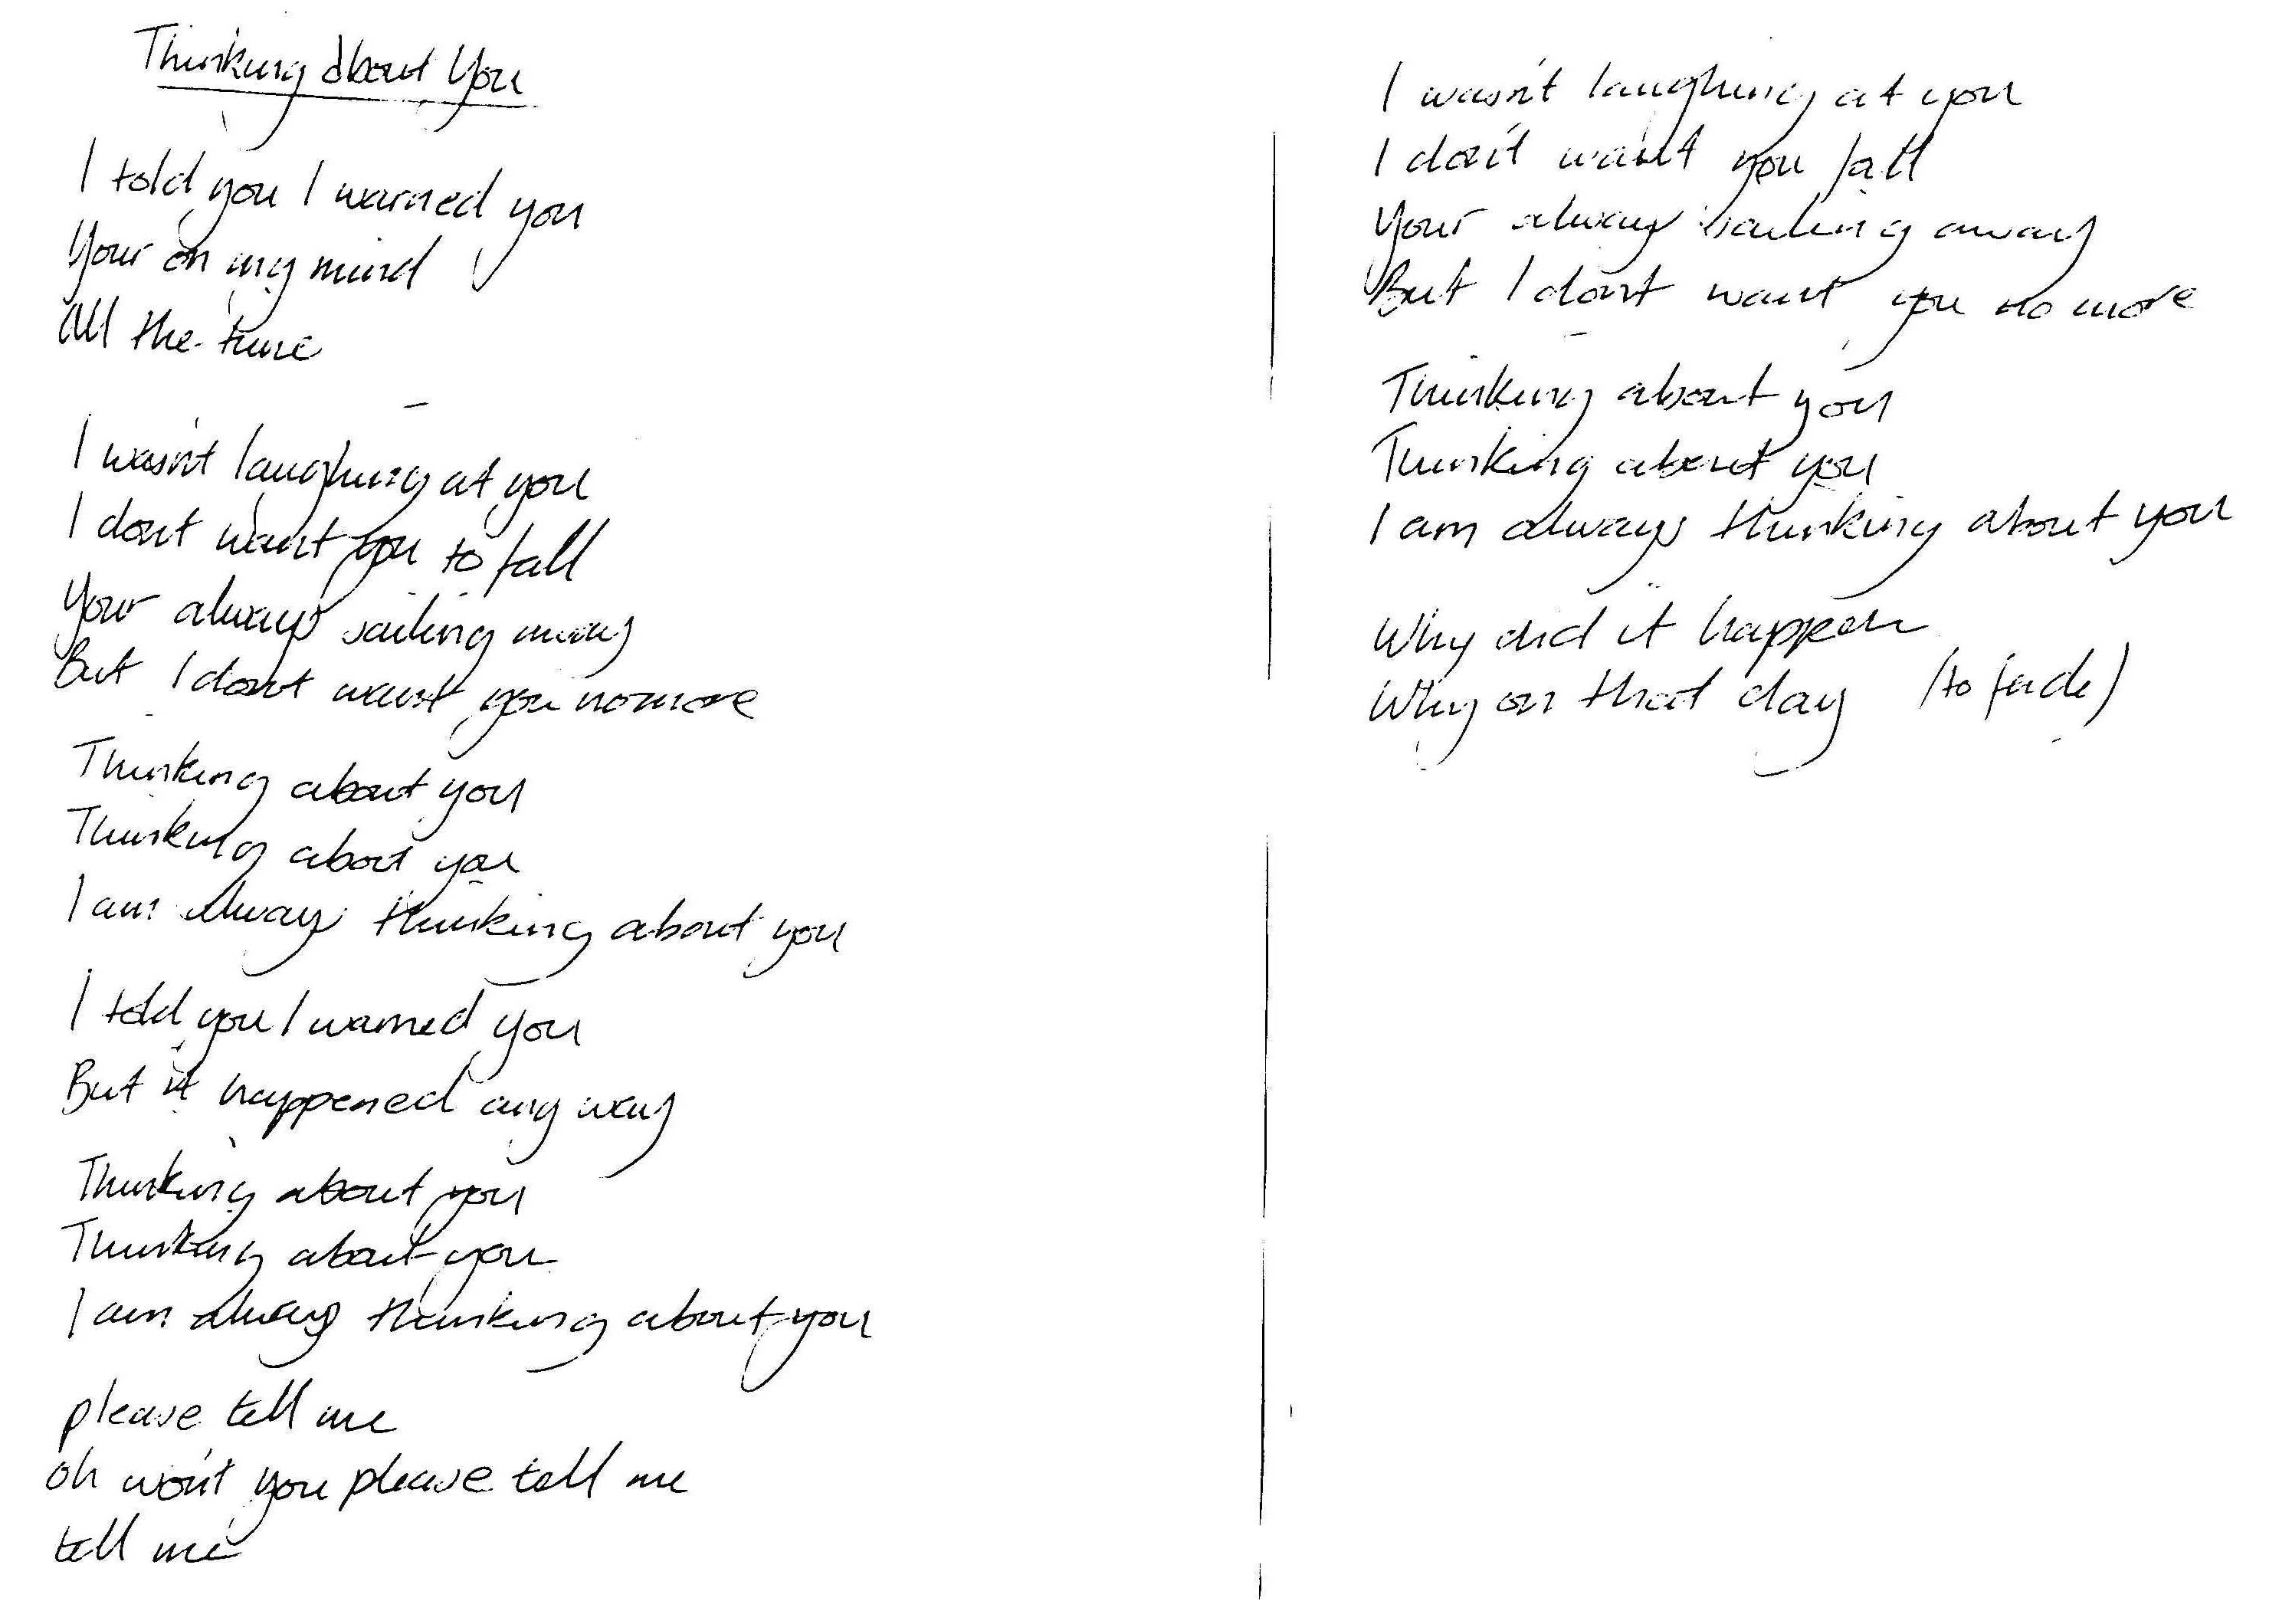 Thinking about You
I told you I warned you
Your on my mind
All the time
I wasn't laughing at you
I dont want you to fall
Your always sailing away
But I dont want you nomore
Thinking about you
Thinking about you
I am always thinking about you
I told you I warned you
But it happened any way
Thinking about you
Thinking about you
I am always thinking about you
please tell me
oh won't you please tell me
tell me
I wasn't laughing at you
I don't want you fall
Your always sailing away
But I dont want you no more
Thinking about you
Thinking about you
I am always thinking about you
Why did it happen
Why on that day (to fade)